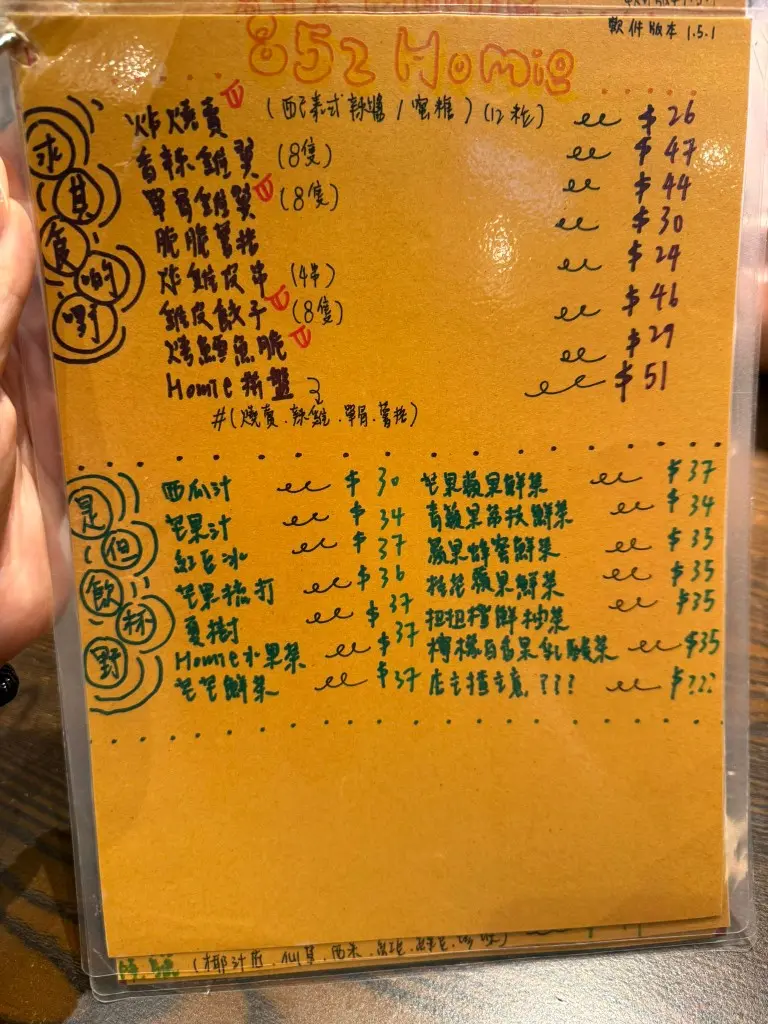 軟件版本 1.5.1
852 Homie
求其食啲嘢
炸燒賣 (配泰式辣醬 / 蜜糖) (12粒) $26
香辣雞翼 (8隻) $47
單骨雞翼 (8隻) $44
脆脆薯格 $30
炸雞皮串 (4串) $24
雞皮餃子 (8隻) $46
烤鱈魚脆 $29
Homie拼盤 $51
#(燒賣、辣雞、單骨、薯格)
是但飲杯野
西瓜汁 $30
芒果汁 $34
紅豆冰 $37
芒果梳打 $36
夏樹 $37
Homie水果茶 $37
芒芒鮮茶 $37
芒果蘋果鮮茶 $37
青蘋果荔枝鮮茶 $34
蘋果蜂蜜鮮茶 $35
桂花蘋果鮮茶 $35
柑柑橙鮮柚茶 $35
檸檬百香果乳酸菜 $35
店主揸主意??? $???
(椰汁西, 仙草, 西米,